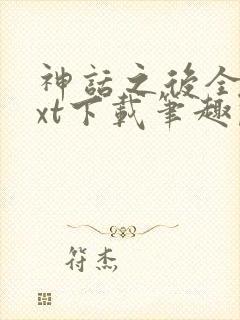 神話之後全
xt下載筆趣
符杰